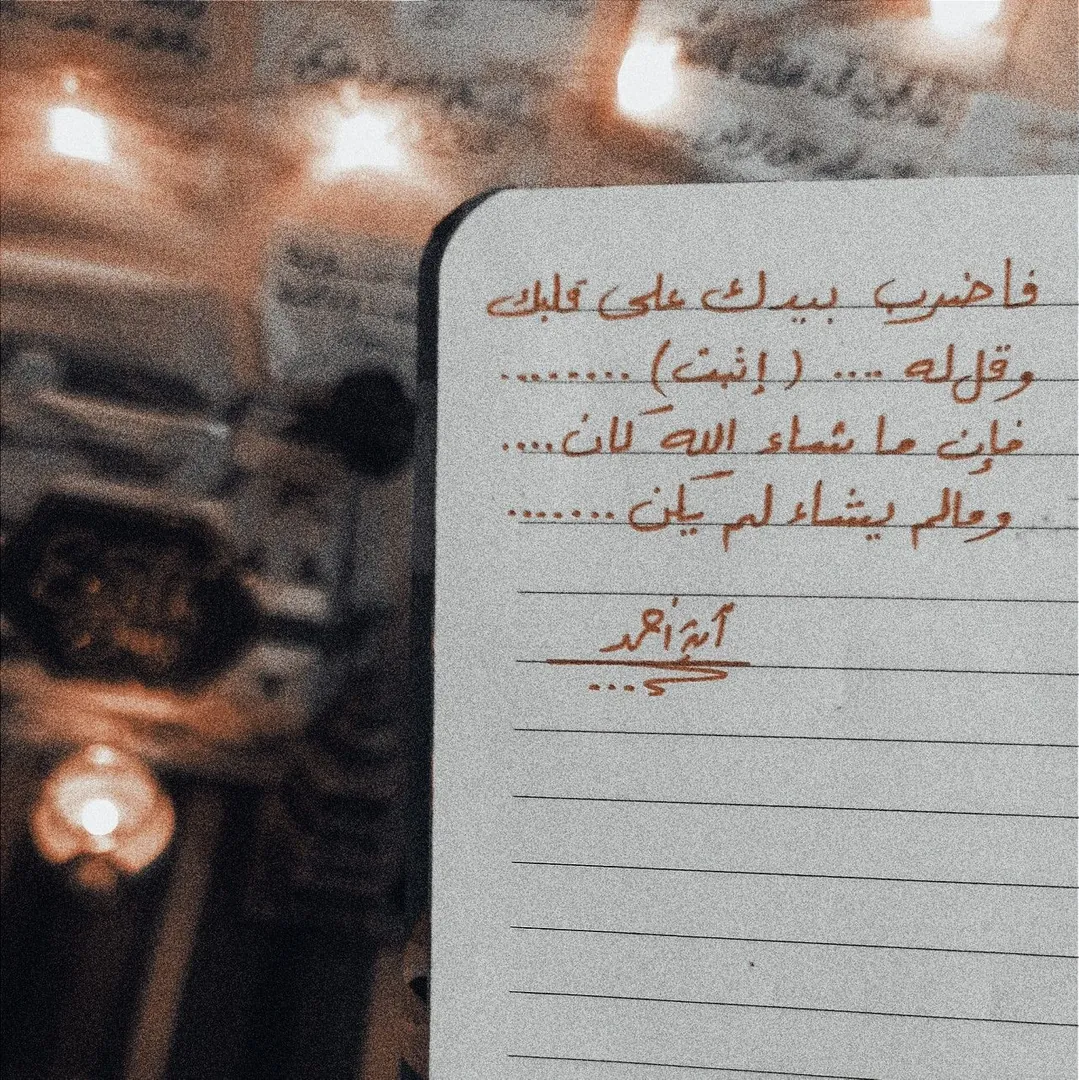 فأضرب بيدك على قلبك
وقل له .... ( إثبت ) ........
فإن ما شاء الله كان ....
ومالم يشاء لم يكن .......
آية أحمد